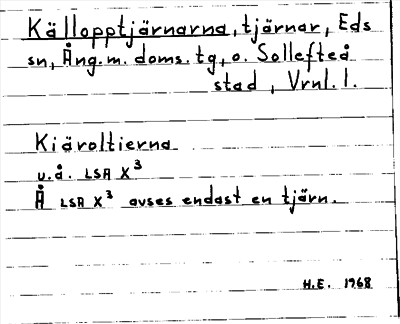 Källopptjärnarna, tjärnar, Eds
sn, Ång.m. doms.tg, o. Sollefteå
stad, Vrnl. l.
Kiäroltierna
u.å. LSA X³
Å LSA X³ avses endast en tjärn.
H.E. 1968